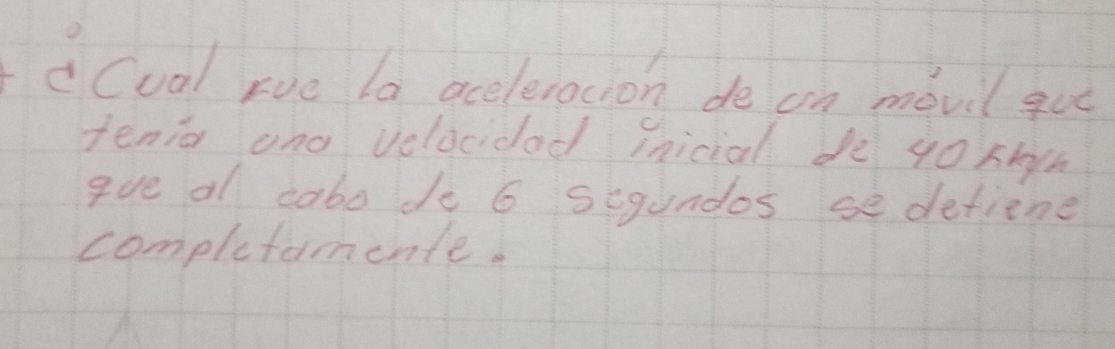 ¿Cual fue la aceleración de un móvil que
tenía una velocidad inicial de 40 km/h
que al cabo de 6 segundos se detiene
completamente.